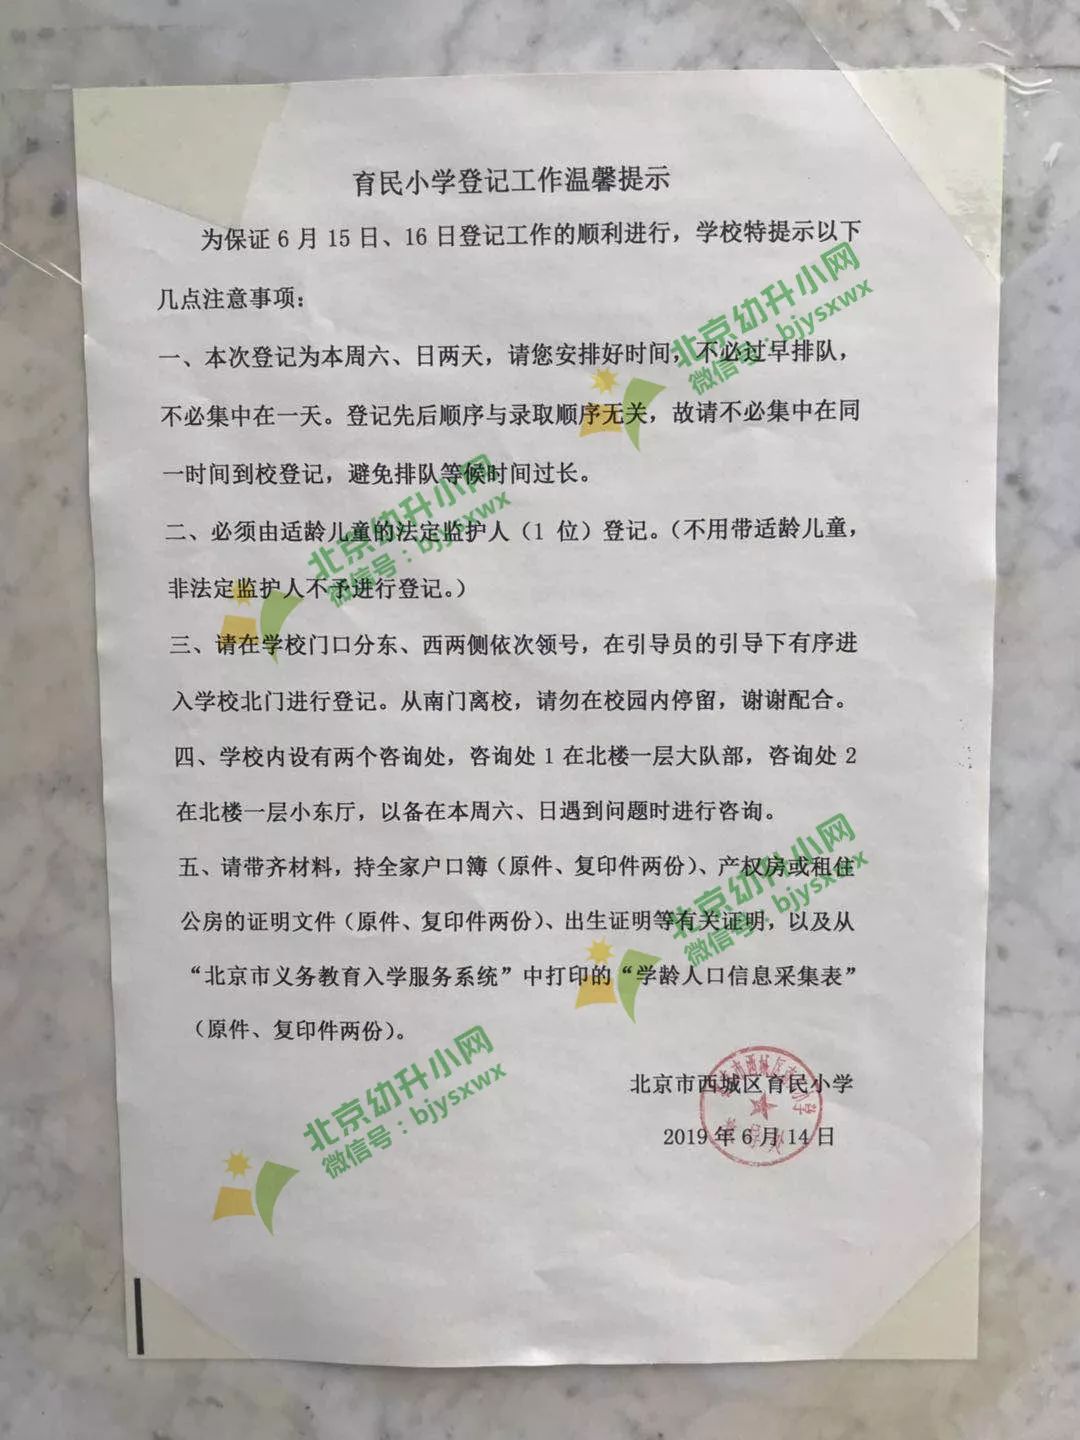 育民小学登记工作温馨提示
为保证6月15日、16日登记工作的顺利进行，学校特提示以下
几点注意事项：
一、本次登记为本周六、日两天，请您安排好时间，不必过早排队，
不必集中在一天。登记先后顺序与录取顺序无关，故请不必集中在同
一时间到校登记，避免排队等候时间过长。
二、必须由适龄儿童的法定监护人（1 位）登记。（不用带适龄儿童，
非法定监护人不予进行登记。）
三、请在学校门口分东、西两侧依次领号，在引导员的引导下有序进
入学校北门进行登记。从南门离校，请勿在校园内停留，谢谢配合。
四、学校内设有两个咨询处，咨询处1在北楼一层大队部，咨询处2
在北楼一层小东厅，以备在本周六、日遇到问题时进行咨询。
五、请带齐材料，持全家户口簿（原件、复印件两份）、产权房或租住
公房的证明文件（原件、复印件两份）、出生证明等有关证明，以及从
“北京市义务教育入学服务系统”中打印的“学龄人口信息采集表”
（原件、复印件两份）。
北京市西城区育民小学
2019年6月14日
北京幼升小网
微信号：bjysxwx
北京幼升小网
微信号：bjysxwx
北京幼升小网
微信号：bjysxwx
北京幼升小网
微信号：bjysxwx